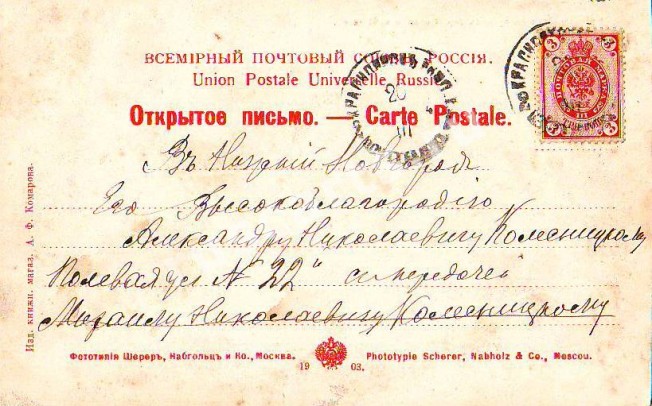 ВСЕМІРНЫЙ ПОЧТОВЫЙ СОЮЗЪ. РОССІЯ.
Union Postale Universelle. Russie
Открытое письмо. — Carte Postale.
Въ Нижній Новгородъ
Его Высокоблагородію
Александру Николаевичу Колесницкому
Полевая ул № 22
съ передачей
Михаилу Николаевичу Колесницкому
Изд. книжн. магаз. А. Ф. Комарова.
Фототипія Шереръ, Набгольцъ и Ко., Москва.
Phototypie Scherer, Nabholz & Co., Moscou.
19 03.
3 3
3 3
20
III